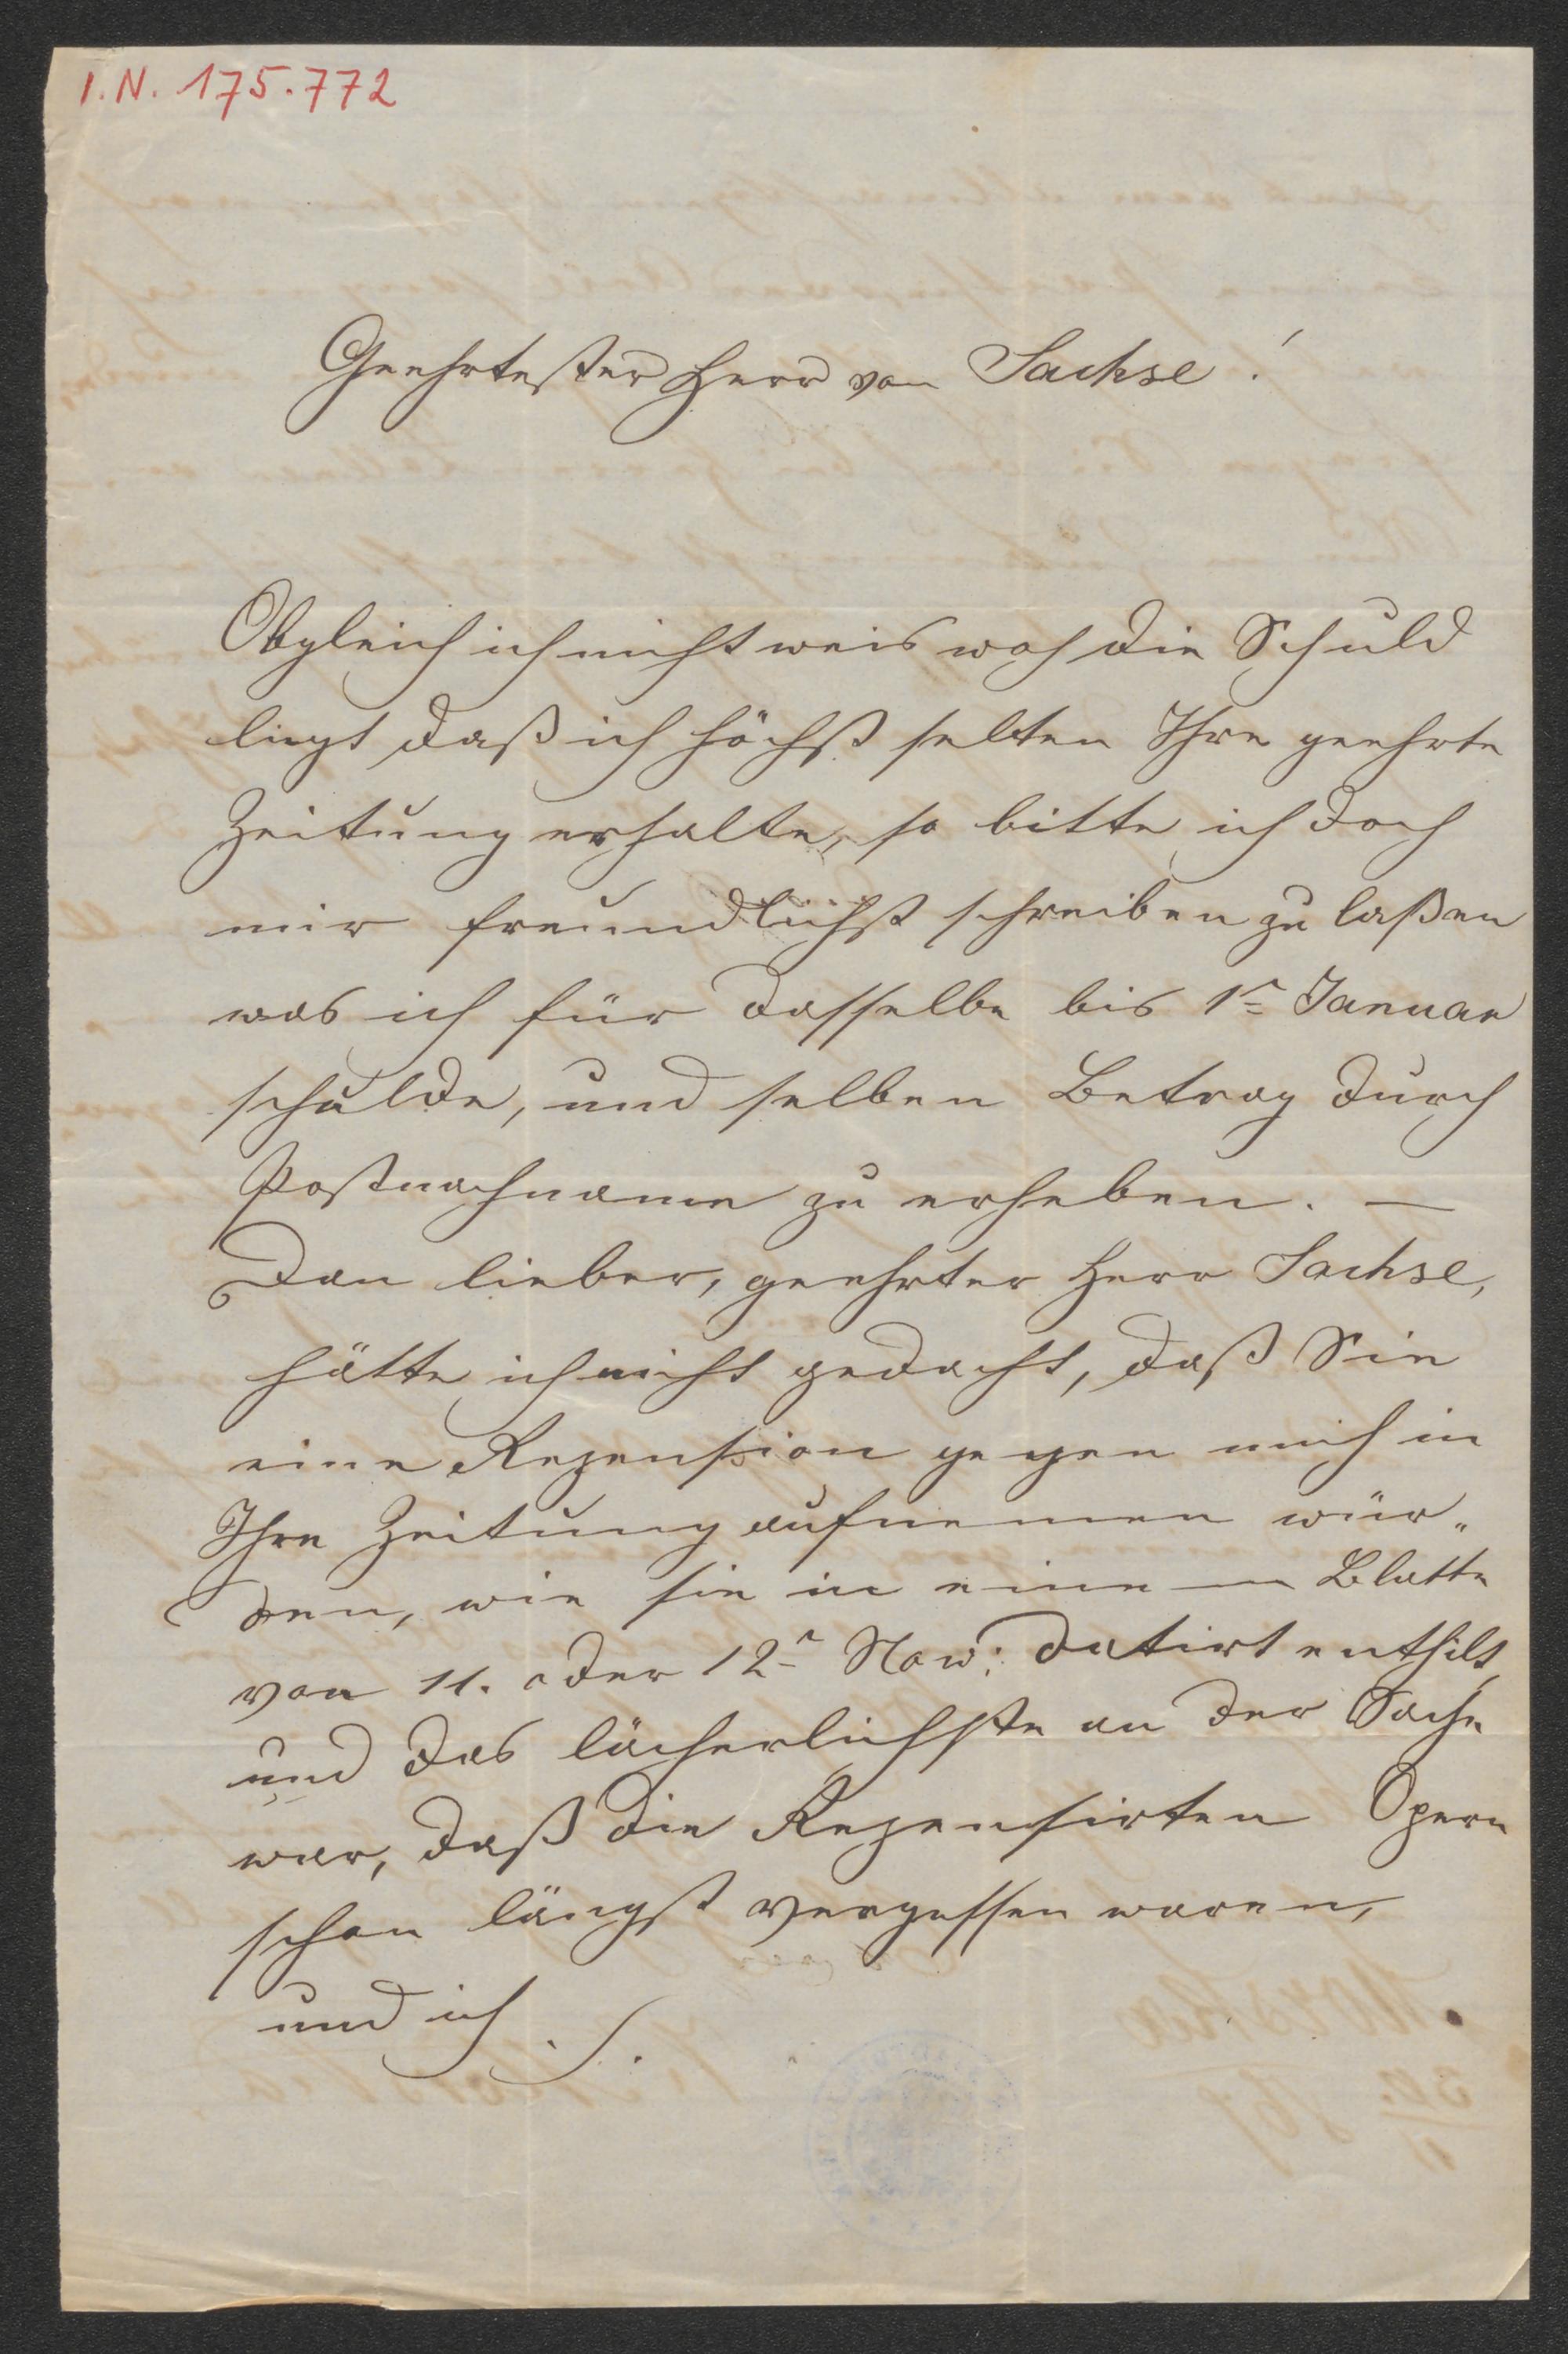 I.N. 175.772
Geehrtester Herr von Sachse!
Obgleich ich nicht weis woh die Schuld
liegt daß ich höchst selten Ihre geehrte
Zeitung erhalte, so bitte ich doch
mir freundlichst schreiben zu laßen
was ich für dasselbe bis 1n Januar
schulde, und selben Betrag durch
Postnachname zu erheben. —
Dan lieber, geehrter Herr Sachse,
hätte ich nicht gedacht, daß Sie
eine Rezension gegen mich in
Ihre Zeitung aufnemen wür„
den, wie sie in einem Blatte
von 11. oder 12n Nov: datirt enthilt,
und das lächerlichste an der Sache
war, daß die Rezensirten Opern
schon längst vergessen waren,
und ich ./.